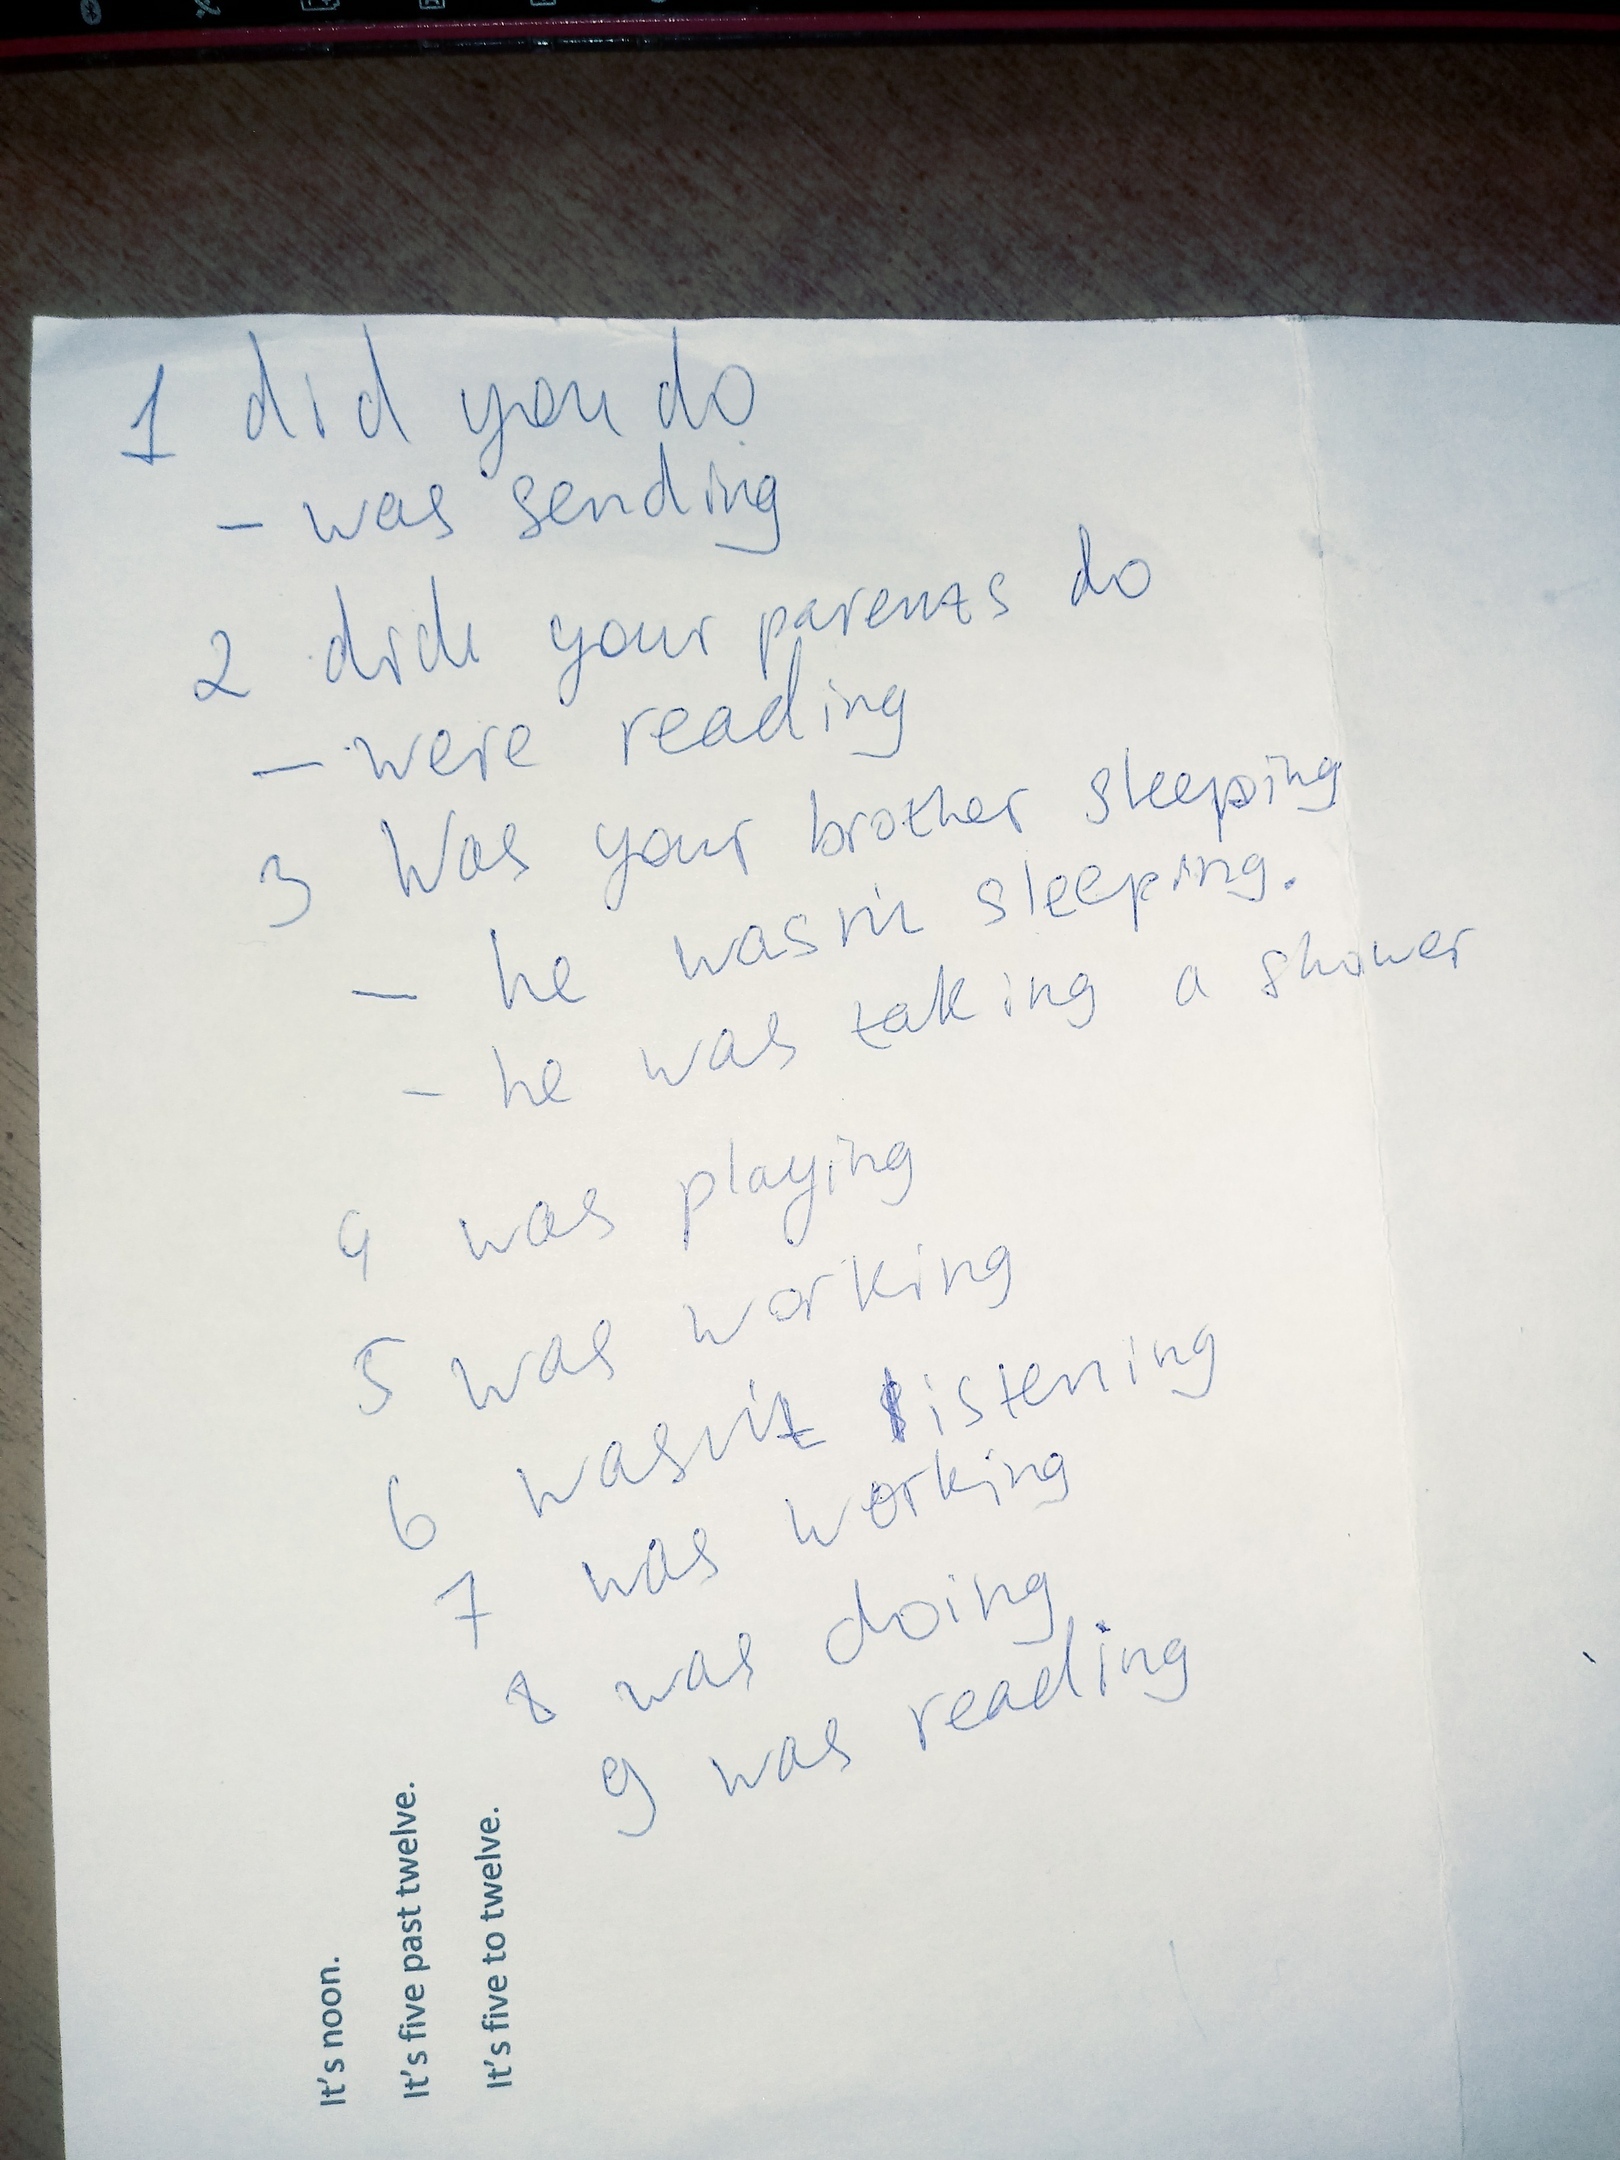 1 did you do
- was sending
2 did your parents do
- were reading
3 Was your brother sleeping
- he wasn't sleeping.
- he was taking a shower
4 was playing
5 was working
6 wasn't listening
7 was working
8 was doing
9 was reading
It's noon.
It's five past twelve.
It's five to twelve.